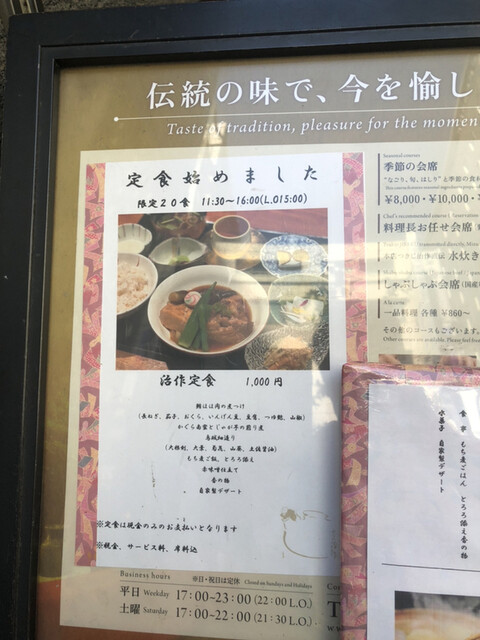 伝統の味で、今を愉し
Taste of tradition, pleasure for the momen
定食始めました
限定20食 11:30～16:00(L.O15:00)
治作定食 1,000円
(長ねぎ、茄子、おくら、いんげん豆、豆腐、つゆ麩、山椒)
かぐら南蛮とじゃが芋の煎り煮
もち麦ご飯、とろろ添え
赤味噌仕立て
香の物
自家製デザート
※定食は現金のみのお支払いとなります
※税金、サービス料、席料込
季節の会席
"なごり、旬、はしり"と季節の食
¥8,000・¥10,000・
料理長お任せ会席
水炊き
しゃぶしゃぶ会席(国産
A la carte
一品料理 各種 ¥860～
その他のコースもございます。
食事 もち麦ごはん とろろ添え香の物
水菓子 自家製デザート
Business hours ※日・祝日は定休 Closed on Sundays and Holidays
平日 Weekday 17:00~23:00(22:00 L.O.)
土曜 Saturday 17:00~22:00(21:30 L.O.)